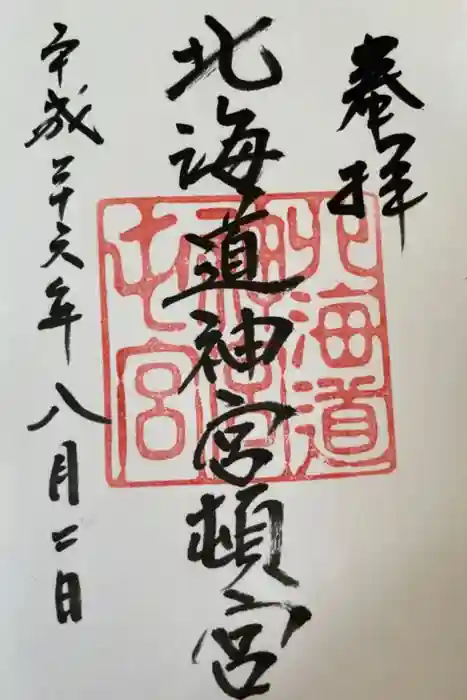 奉拝
北海道神宮頓宮
平成二十六年八月二日
北海道
神宮
屯宮